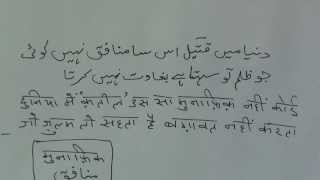 دنیا میں قتیل اس سا منافق نہیں کوئی
جو ظلم تو سہتا ہے بغاوت نہیں کرتا
दुनिया में क़तील उस सा मुनाफ़िक़ नहीं कोई
जो ज़ुल्म तो सहता है बग़ावत नहीं करता
मुनाफ़िक़
منافق